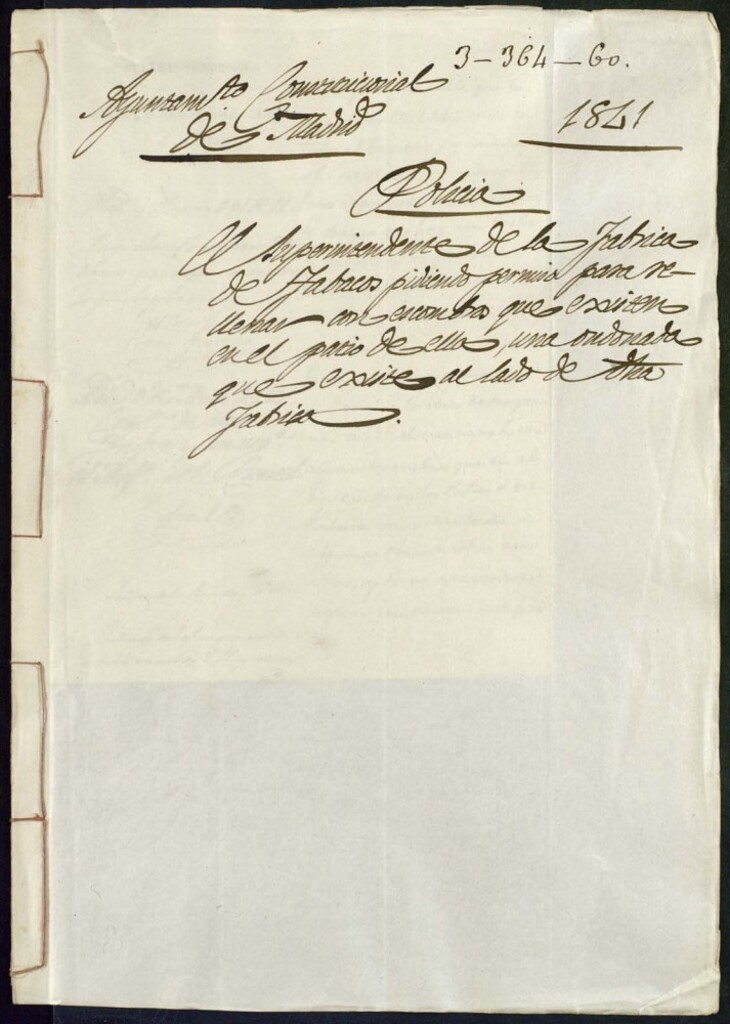 3-364-60.
Ayuntam.to Constitucional
de Madrid
1841
Policia
El Superintendente de la Fabrica
de Tabacos pidiendo permiso para re-
llenar con escombros que existen
en el patio de ella, una ondonada
que existe al lado de dha
Fabrica.